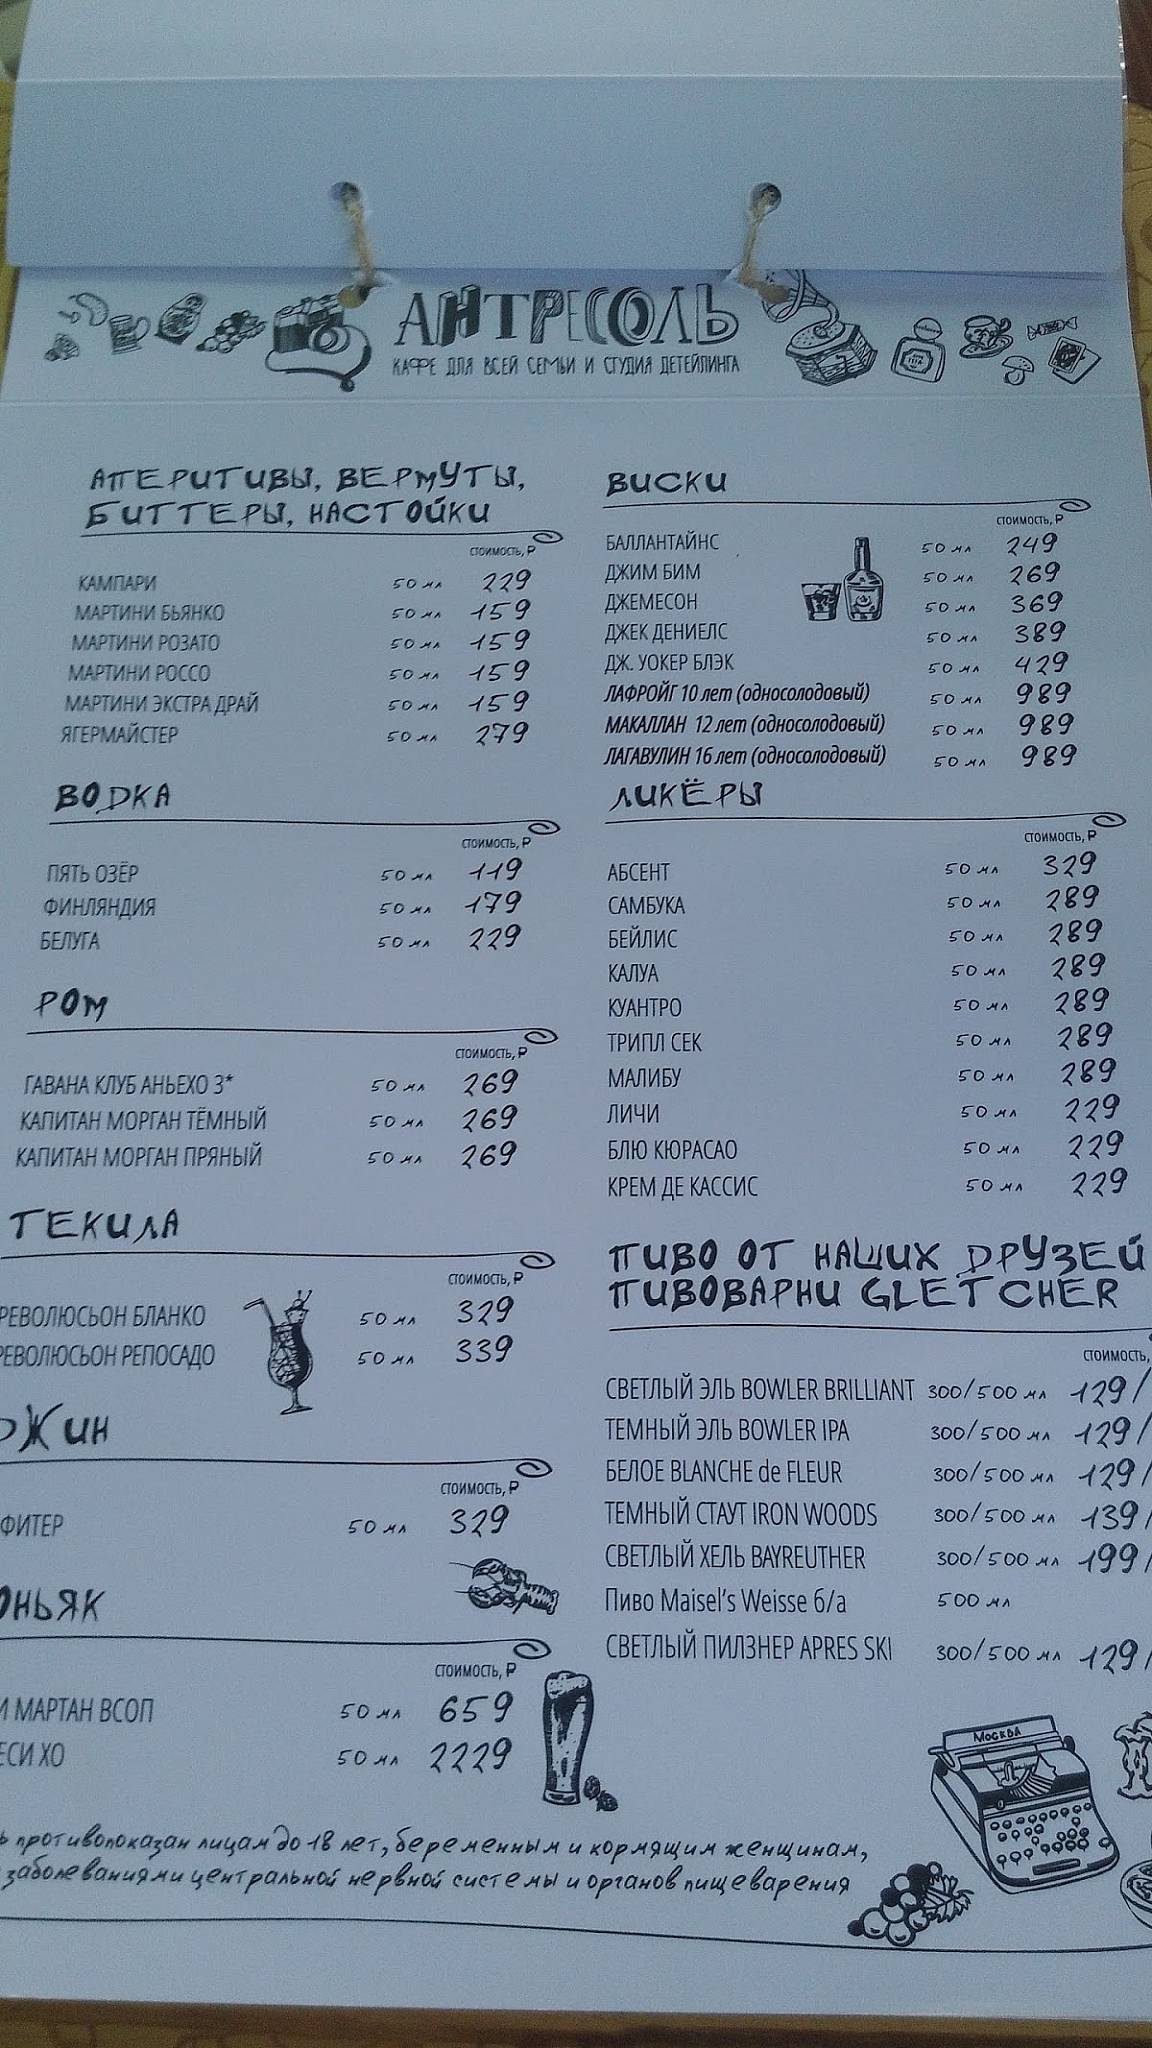 АНТРЕСОЛЬ
КАФЕ ДЛЯ ВСЕЙ СЕМЬИ И СТУДИЯ ДЕТЕЙЛИНГА
АПЕРИТИВЫ, ВЕРМУТЫ,
БИТТЕРЫ, НАСТОЙКИ
СТОИМОСТЬ, ₽
КАМПАРИ 50 мл 229
МАРТИНИ БЬЯНКО 50 мл 159
МАРТИНИ РОЗАТО 50 мл 159
МАРТИНИ РОССО 50 мл 159
МАРТИНИ ЭКСТРА ДРАЙ 50 мл 159
ЯГЕРМАЙСТЕР 50 мл 279
ВОДКА
СТОИМОСТЬ, ₽
ПЯТЬ ОЗЁР 50 мл 119
ФИНЛЯНДИЯ 50 мл 179
БЕЛУГА 50 мл 229
РОМ
СТОИМОСТЬ, ₽
ГАВАНА КЛУБ АНЬЕХО 3* 50 мл 269
КАПИТАН МОРГАН ТЁМНЫЙ 50 мл 269
КАПИТАН МОРГАН ПРЯНЫЙ 50 мл 269
ТЕКИЛА
СТОИМОСТЬ, ₽
РЕВОЛЮСЬОН БЛАНКО 50 мл 329
РЕВОЛЮСЬОН РЕПОСАДО 50 мл 339
ЖИН
СТОИМОСТЬ, ₽
ФИТЕР 50 мл 329
ОНЬЯК
СТОИМОСТЬ, ₽
И МАРТАН ВСОП 50 мл 659
ЕСИ ХО 50 мл 2229
ВИСКИ
СТОИМОСТЬ, ₽
БАЛЛАНТАЙНС 50 мл 249
ДЖИМ БИМ 50 мл 269
ДЖЕМЕСОН 50 мл 369
ДЖЕК ДЕНИЕЛС 50 мл 389
ДЖ. УОКЕР БЛЭК 50 мл 429
ЛАФРОЙГ 10 лет (односолодовый) 50 мл 989
МАКАЛЛАН 12 лет (односолодовый) 50 мл 989
ЛАГАВУЛИН 16 лет (односолодовый) 50 мл 989
ЛИКЁРЫ
СТОИМОСТЬ, ₽
АБСЕНТ 50 мл 329
САМБУКА 50 мл 289
БЕЙЛИС 50 мл 289
КАЛУА 50 мл 289
КУАНТРО 50 мл 289
ТРИПЛ СЕК 50 мл 289
МАЛИБУ 50 мл 289
ЛИЧИ 50 мл 229
БЛЮ КЮРАСАО 50 мл 229
КРЕМ ДЕ КАССИС 50 мл 229
ПИВО ОТ НАШИХ ДРУЗЕЙ
ПИВОВАРНИ GLETCHER
СТОИМОСТЬ,
СВЕТЛЫЙ ЭЛЬ BOWLER BRILLIANT 300/500 мл 129/
ТЕМНЫЙ ЭЛЬ BOWLER IPA 300/500 мл 129/
БЕЛОЕ BLANCHE de FLEUR 300/500 мл 129/
ТЕМНЫЙ СТАУТ IRON WOODS 300/500 мл 139/
СВЕТЛЫЙ ХЕЛЬ BAYREUTHER 300/500 мл 199/
Пиво Maisel's Weisse б/а 500 мл
СВЕТЛЫЙ ПИЛЗНЕР APRES SKI 300/500 мл 129/
МОСКВА
ь противопоказан лицам до 18 лет, беременным и кормящим женщинам,
заболеваниями центральной нервной системы и органов пищеварения